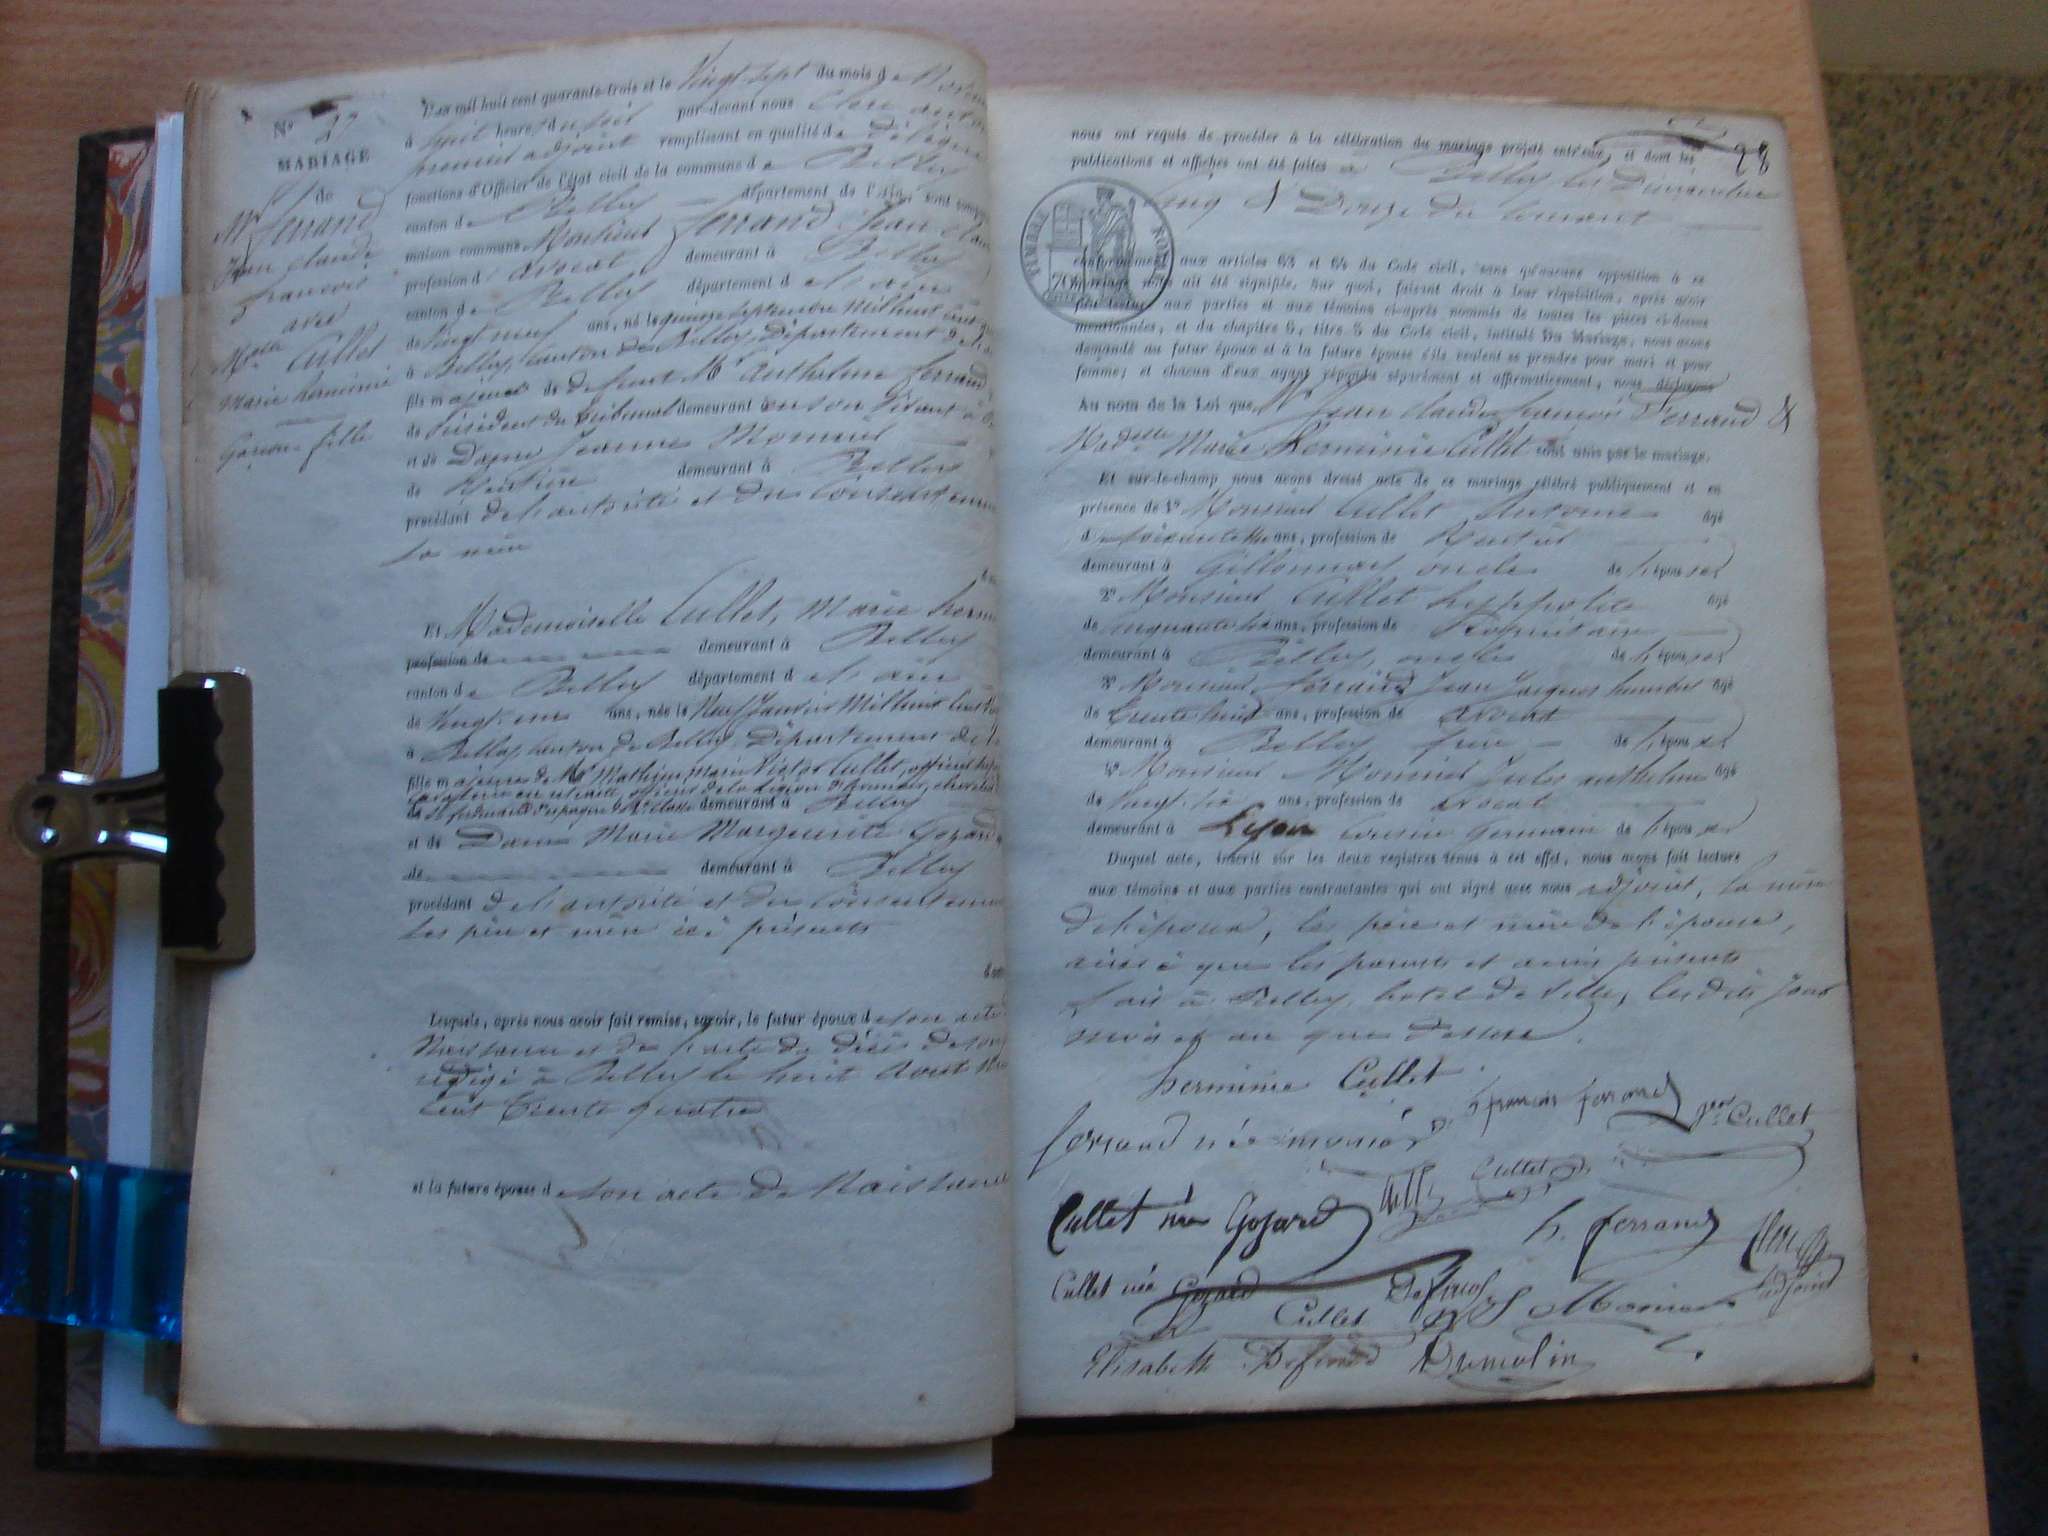 Nº 27
MARIAGE
de
Mr ferrand
Jean claude
françois
avec
Mlle Cullet
Marie herminie
Garçon fille
L'an mil huit cent quarante-trois et le Vingt sept du mois de
à huit heures du soir par-devant nous
premier adjoint remplissant en qualité de Délégué
fonctions d'Officier de l'état civil de la commune de Belley
canton de Belley département de l'Ain sont
maison commune Monsieur ferrand Jean
profession d' avocat demeurant à Belley
canton de Belley département de l'ain
de Vingt neuf ans, né le quinze septembre Mil huit cent
à Belley, canton de Belley, Département de
fils majeur de defunt Mr Anthelme ferrand
de Président du tribunal demeurant en son vivant à
et de Dame Jeanne Monnier
de Rentière demeurant à Belley
procédant de l'autorité et du consentement
sa mère
Et Mademoiselle Cullet, Marie
profession de demeurant à Belley
canton de Belley département de l'ain
de Vingt-un ans, née le Neuf Janvier Mil huit cent
à Belley, canton de Belley, Département de
fille majeure de Mr Mathieu Marie Victor Cullet, officier
en retraite, officier de la Légion d'honneur, chevalier
de St ferdinand d'espagne de 2e classe demeurant à Belley
et de Dame Marie Marguerite Gozard
de demeurant à Belley
procédant de l'autorité et du consentement
Les père et mère ici présents
Lesquels, après nous avoir fait remise, savoir, le futur époux de son acte
Naissance et de l'acte de décès de son
rédigé à Belley le huit Aout
Cent trente quatre
et la future épouse de son acte de Naissance
28
nous ont requis de procéder à la célébration du mariage projeté entr'eux, et dont les
publications et affiches ont été faites à Belley les Dimanches
Cinq & Douze du courant
TIMBRE ROYAL
conformément aux articles 63 et 64 du Code civil, sans qu'aucune opposition à ce
mariage nous ait été signifiée. Sur quoi, faisant droit à leur réquisition, après avoir
fait lecture aux parties et aux témoins ci-après nommés de toutes les pièces ci-dessus
mentionnées, et du chapitre 6, titre 5 du Code civil, intitulé Du Mariage, nous avons
demandé au futur époux et à la future épouse s'ils veulent se prendre pour mari et pour
femme; et chacun d'eux ayant répondu séparément et affirmativement, nous déclarons
Au nom de la Loi que Mr Jean claude françois Ferrand &
Madelle Marie Herminie Cullet sont unis par le mariage.
Et sur-le-champ nous avons dressé acte de ce mariage célébré publiquement et en
présence de 1º Monsieur Cullet Antoine âgé
de ans, profession de Rentier
demeurant à oncle de l'épouse
2º Monsieur Cullet hyppolite âgé
de cinquante ans, profession de Propriétaire
demeurant à Belley, oncle de l'épouse
3º Monsieur ferrand Jean Jacques âgé
de trente huit ans, profession de avocat
demeurant à Belley frère de l'époux
4º Monsieur Monnier Jules anthelme âgé
de Vingt-six ans, profession de avocat
demeurant à Lyon Cousin Germain de l'époux
Duquel acte, inscrit sur les deux registres tenus à cet effet, nous avons fait lecture
aux témoins et aux parties contractantes qui ont signé avec nous adjoint, la mère
de l'époux, les père et mère de l'épouse,
ainsi que les parents et amis présents
fait à Belley, hotel de Ville, les dits jour
mois et an que dessus.
herminie Cullet
françois ferrand
Cullet
ferrand née monnier
Cullet
Cullet née Gozard
h. ferrand
Cullet née Gozard
adjoint
Cullet
Elisabeth
Dumolin